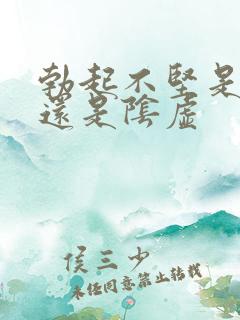 勃起不坚是
還是陰虚
侯三少
未经同意禁止转载